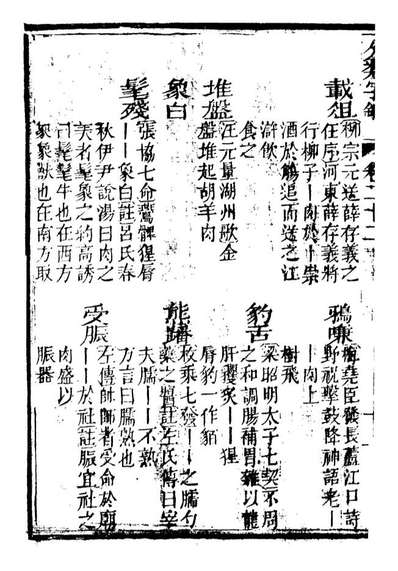 分類字錦
卷二十二
載俎
柳宗元送薛存義之
任序河東薛存義將
行柳子——肉於——崇
酒於觴追而送之江
滸飲
食之
堆盤
汪元量湖州歌金
盤堆起胡羊肉
象白
髦殘
張協七命鷰髀猩脣
——象白註呂氏春
秋伊尹說湯曰肉之
美者髦象之約高誘
曰髦髦牛也在西方
象象獸也在南方取
鴉嗛
梅堯臣發長蘆江口詩
野祝擊鼓降神語老—
—肉上
樹飛
豹舌
梁昭明太子七契不周
之和調腸補胃雜以龍
肝獲炙——猩
脣豹一作貊
熊蹯
枚乘七發——之臑勺
藥之醬註左氏傳曰宰
夫臑——不熟
方言曰臑熟也
受脤
左傳帥師者受命於廟
——於社註脤宜社之
肉盛以
脤器